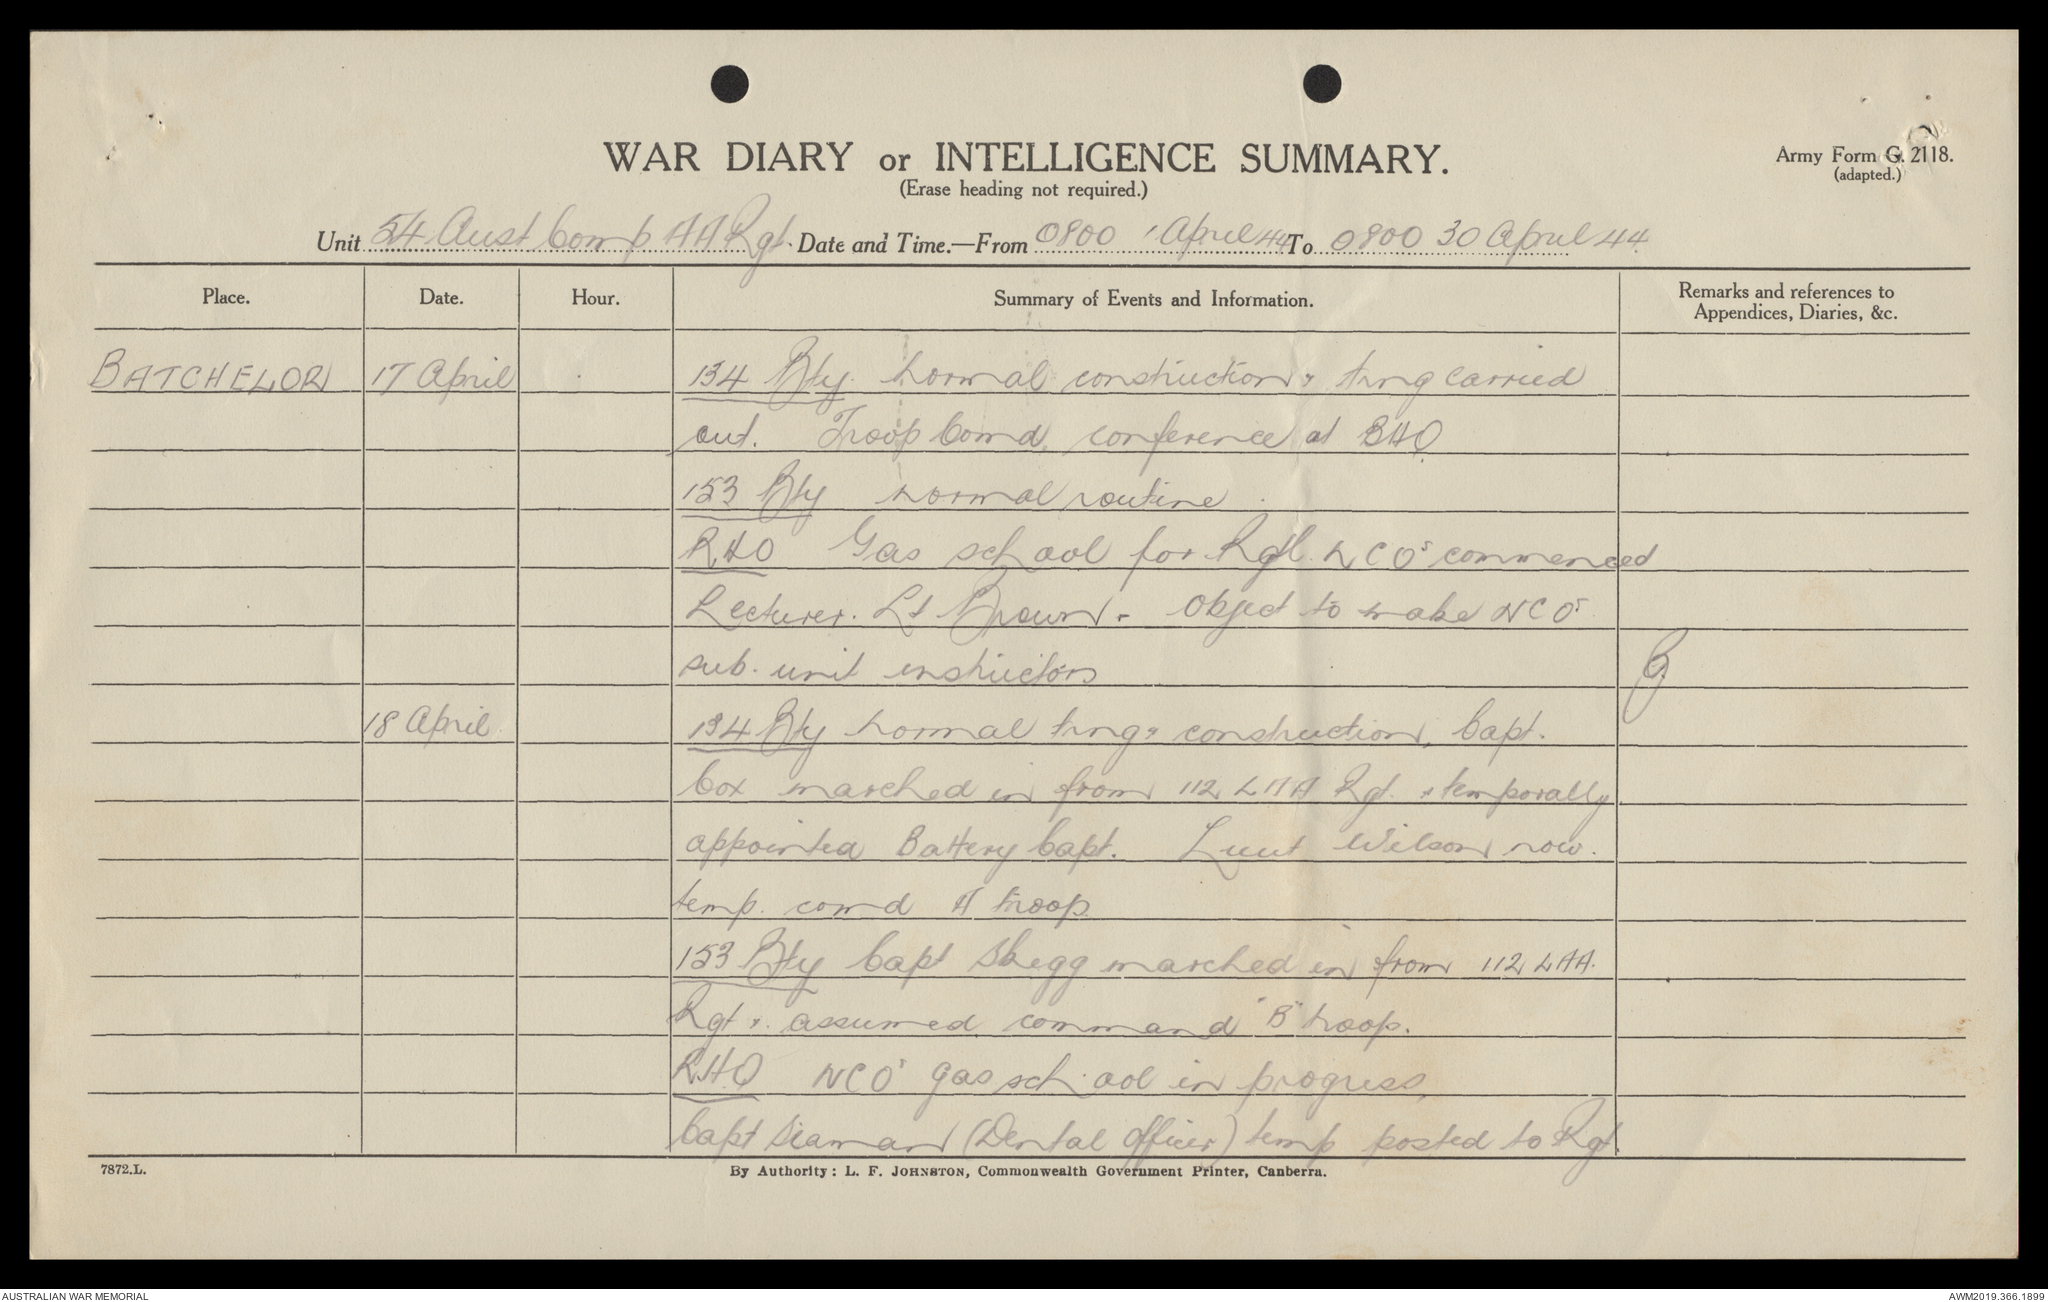 WAR DIARY or INTELLIGENCE SUMMARY.
(Erase heading not required.)
Army Form G. 2118.
(adapted.)
Unit 54 Aust Comp AA Rgt. Date and Time.—From 0800 1 April 44 To 0800 30 April 44
Place. Date. Hour. Summary of Events and Information. Remarks and references to Appendices, Diaries, &c.
BATCHELOR 17 April 134 Bty. normal construction & trng carried
out. Troop Comd. conference at BHQ
153 Bty normal routine.
RHQ Gas school for Rgtl. NCO's commenced
Lecturer. Lt Brown. - Object to make NCO's
sub. unit instructors
18 April 134 Bty normal trng & construction, Capt.
Cox marched in from 112 LAA Rgt. & temporally
appointed Battery Capt. Lieut Wilson now.
temp. comd A troop
153 Bty Capt Skegg marched in from 112 LAA.
Rgt &. assumed command "B" troop.
RHQ NCO's gas school in progress,
Capt Seaman (Dental Officer) temp posted to Rgt.
7872.L.
By Authority: L. F. JOHNSTON, Commonwealth Government Printer, Canberra.
AUSTRALIAN WAR MEMORIAL
AWM2019.366.1899